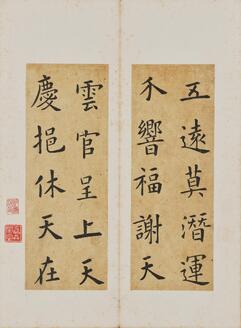 五遠莫潛運
不響福謝天
雲官呈上天
慶挹休天在